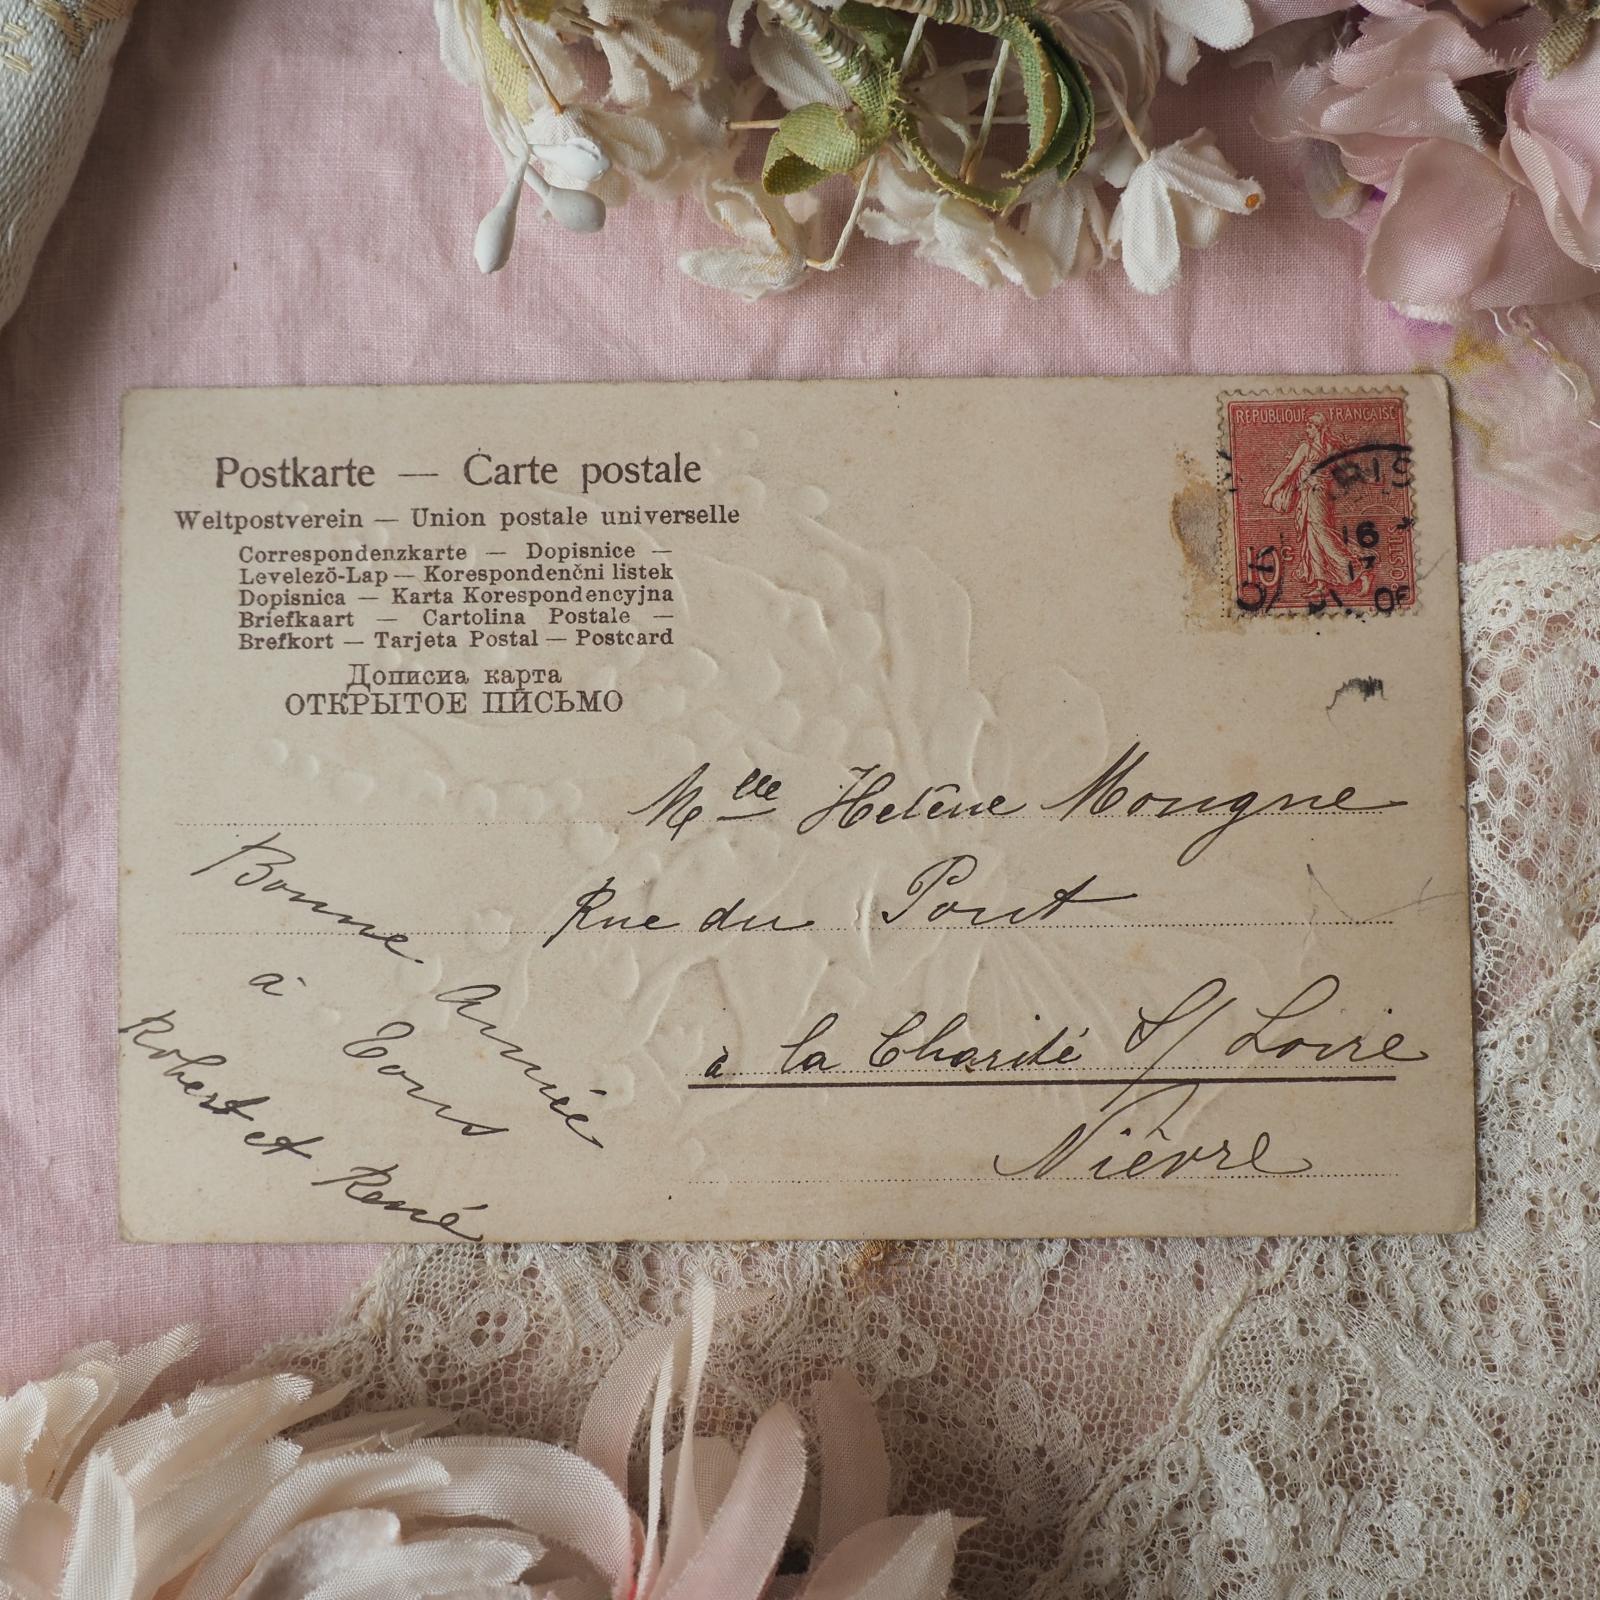 Postkarte — Carte postale
Weltpostverein — Union postale universelle
Correspondenzkarte — Dopisnice —
Levelező-Lap — Korespondenčni listek
Dopisnica — Karta Korespondencyjna
Briefkaart — Cartolina Postale —
Brefkort — Tarjeta Postal — Postcard
Дописна карта
ОТКРЫТОЕ ПИСЬМО
REPUBLIQUE FRANÇAISE
10 c
POSTES
RIS
16
06
Mlle Helène Mougne
Rue du Pont
à la Charité S/ Loire
Nièvre
Bonne Année
à Tous
Robert et René